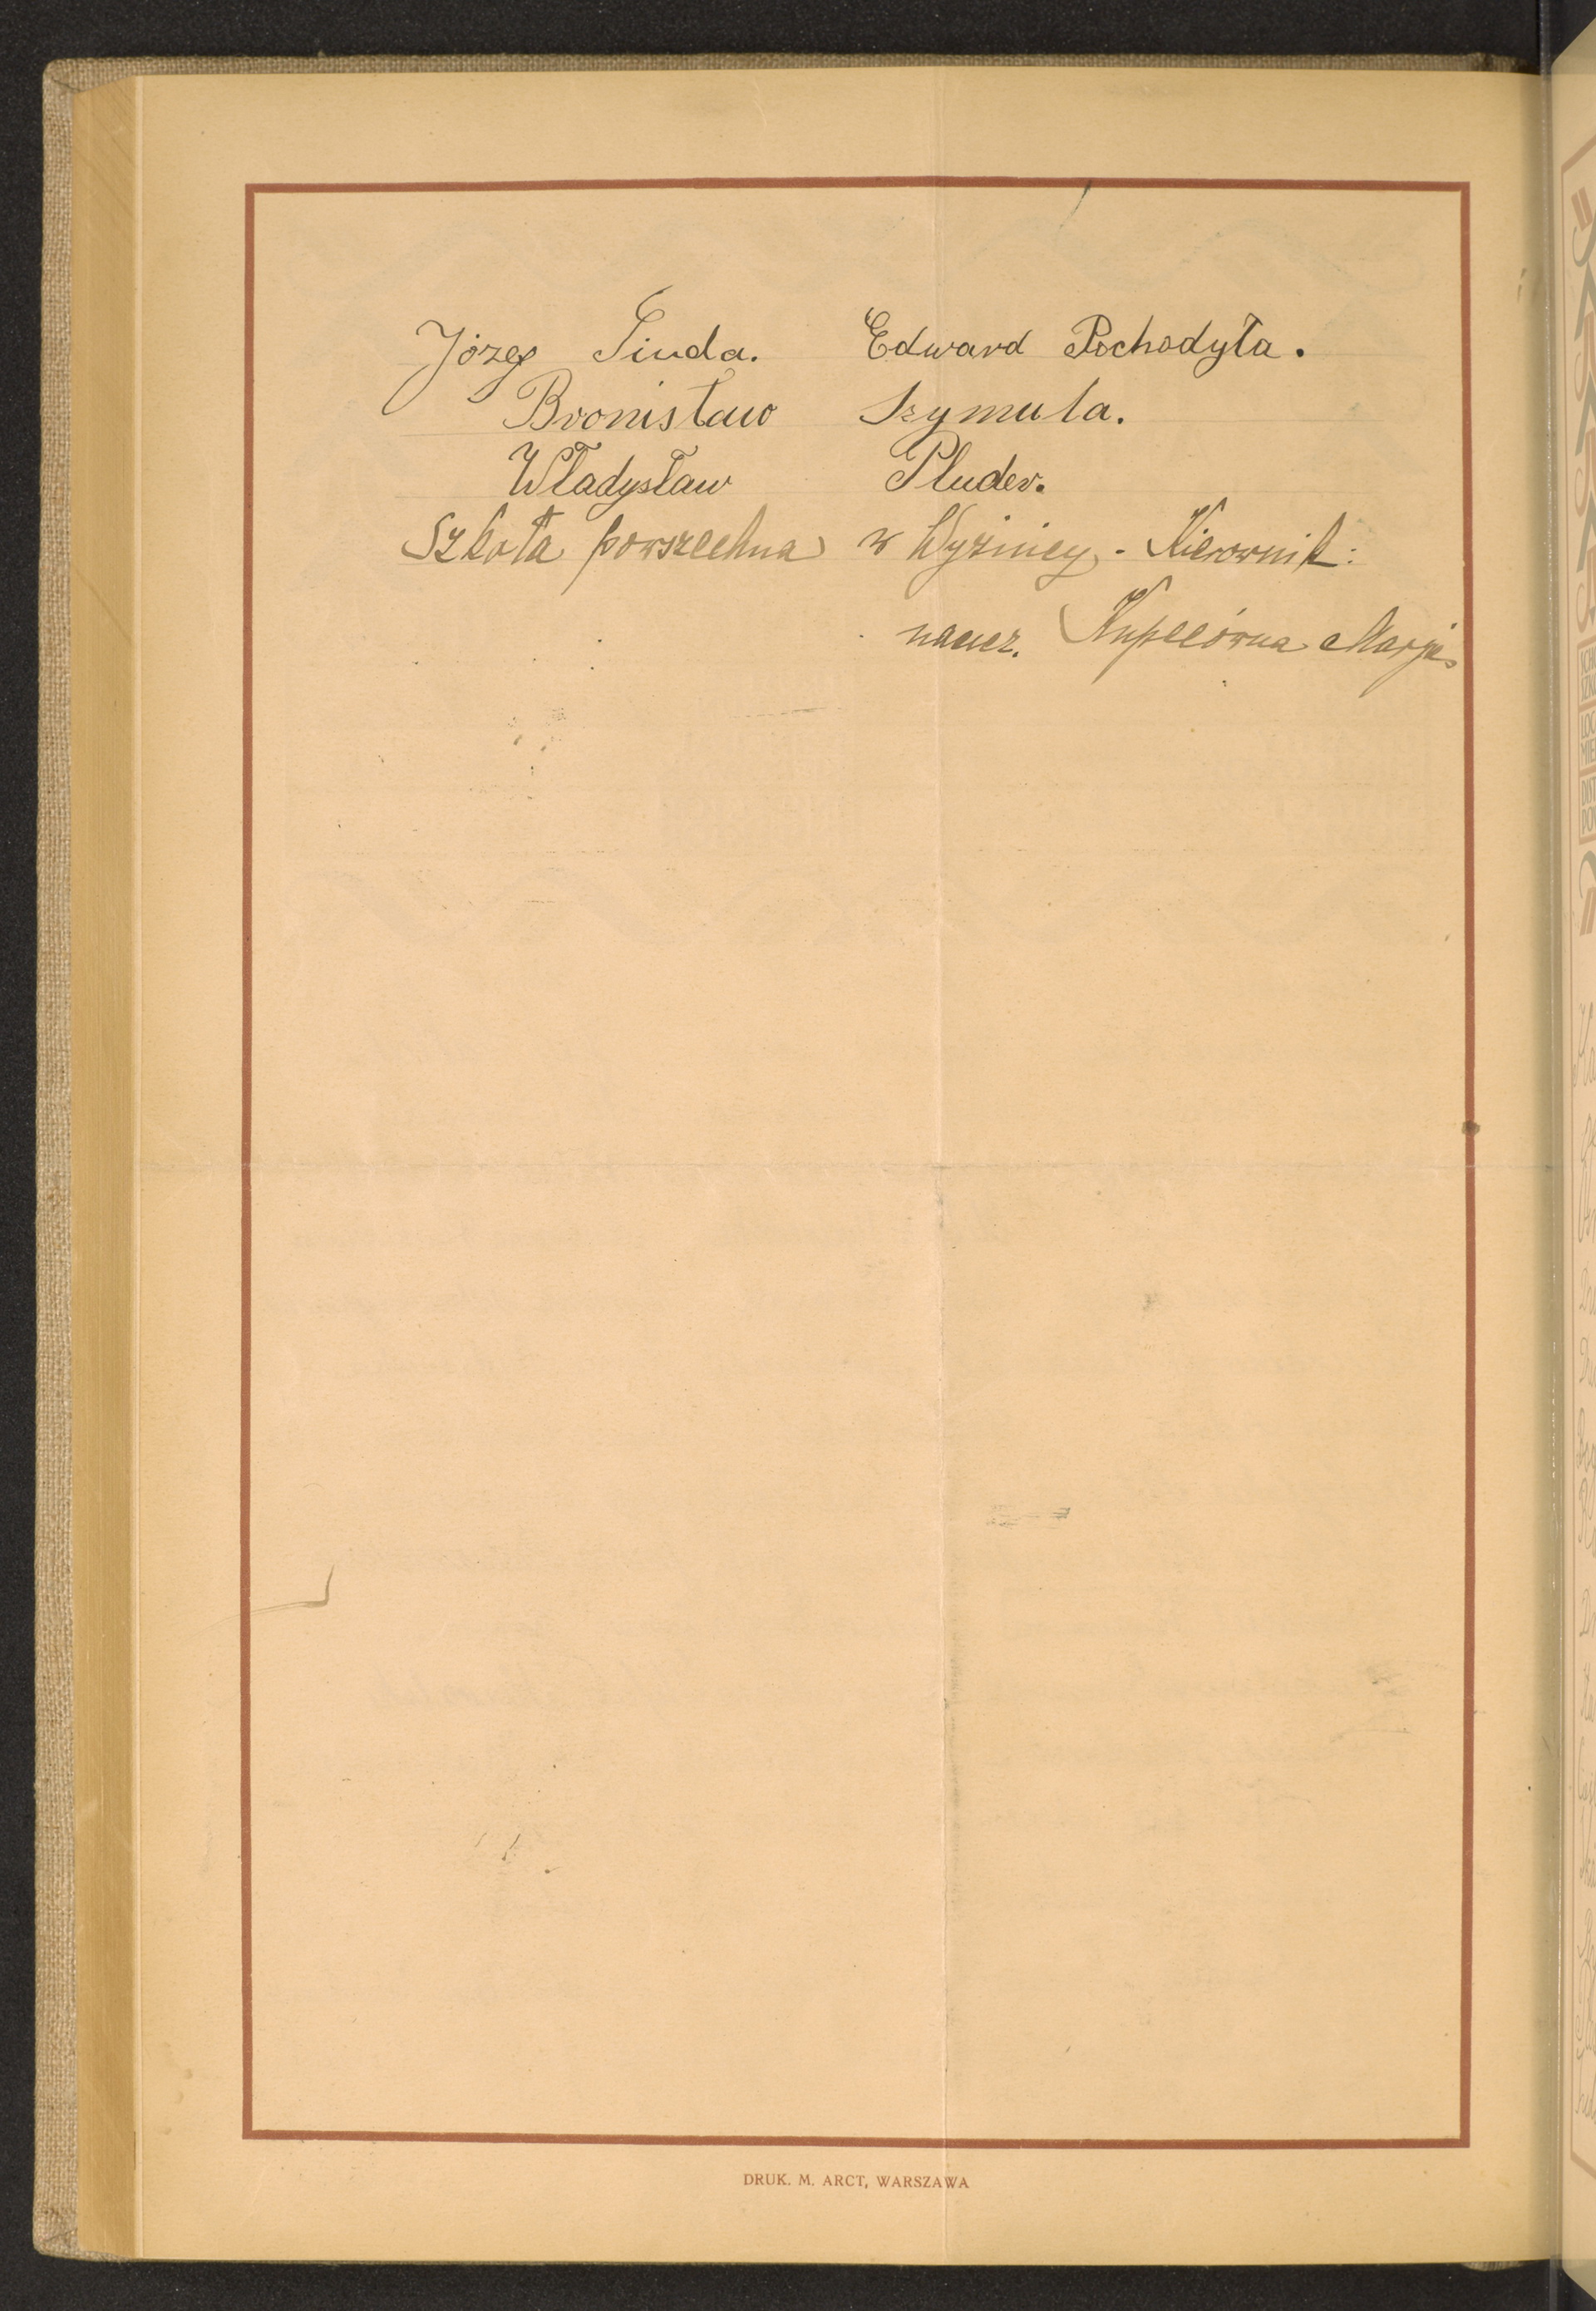 Józef Siuda. Edward Pochodyła.
Bronisław Szymula.
Władysław Pluder.
Szkoła powszechna w Wyżnicy - Kierownik:
naucz. Kupcówna Marja
DRUK. M. ARCT, WARSZAWA